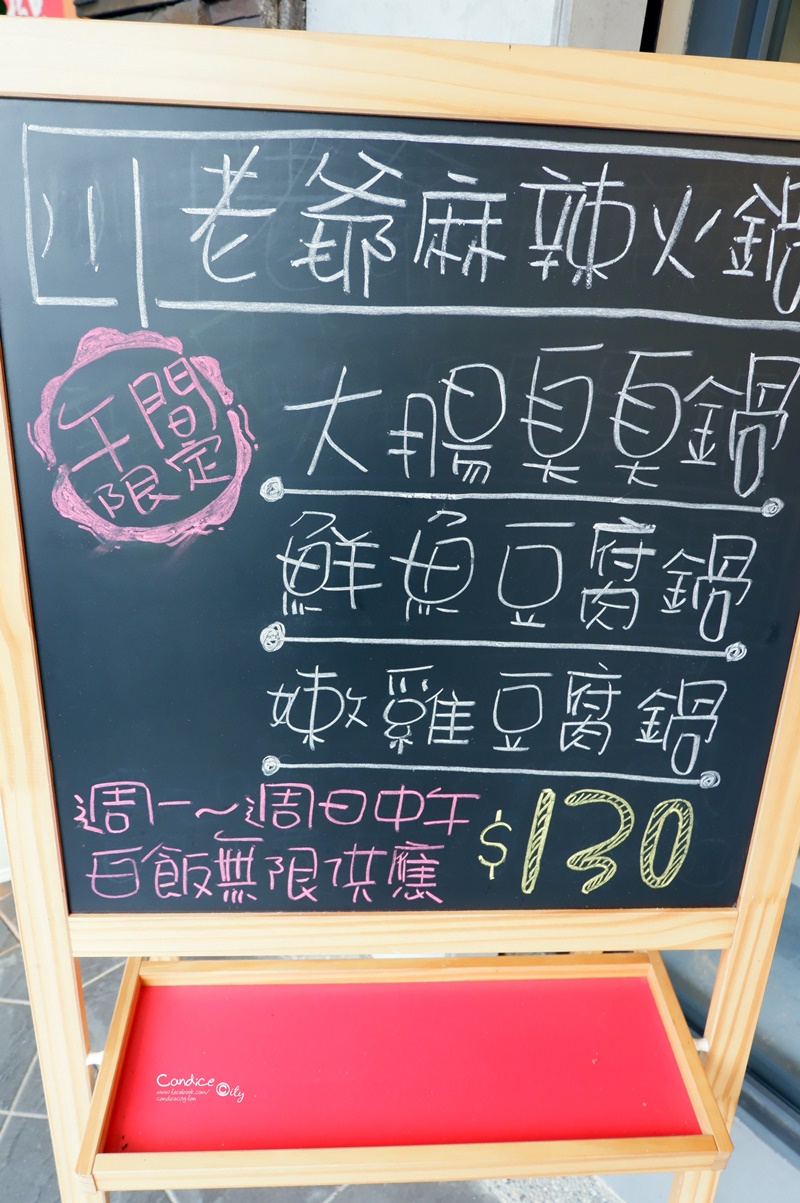 川老爺麻辣火鍋
午間
限定
大腸臭臭鍋
鮮魚豆腐鍋
嫩雞豆腐鍋
週一~週日中午
白飯無限供應
$130
Candice City
www.facebook.com/
candicecity.fan